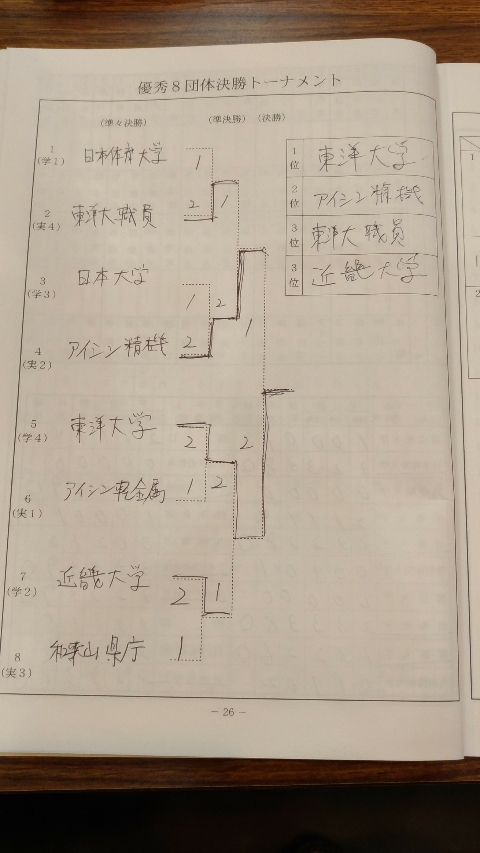 優秀8団体決勝トーナメント
(準々決勝) (準決勝) (決勝)
1
(学1)
日本体育大学
1
2
(実4)
東洋大職員
2
1
3
(学3)
日本大学
1
2
4
(実2)
アイシン精機
2
1
5
(学4)
東洋大学
2
2
6
(実1)
アイシン軽金属
1
2
7
(学2)
近畿大学
2
1
8
(実3)
和歌山県庁
1
1位 東洋大学
2位 アイシン精機
3位 東洋大職員
3位 近畿大学
1
2
- 26 -